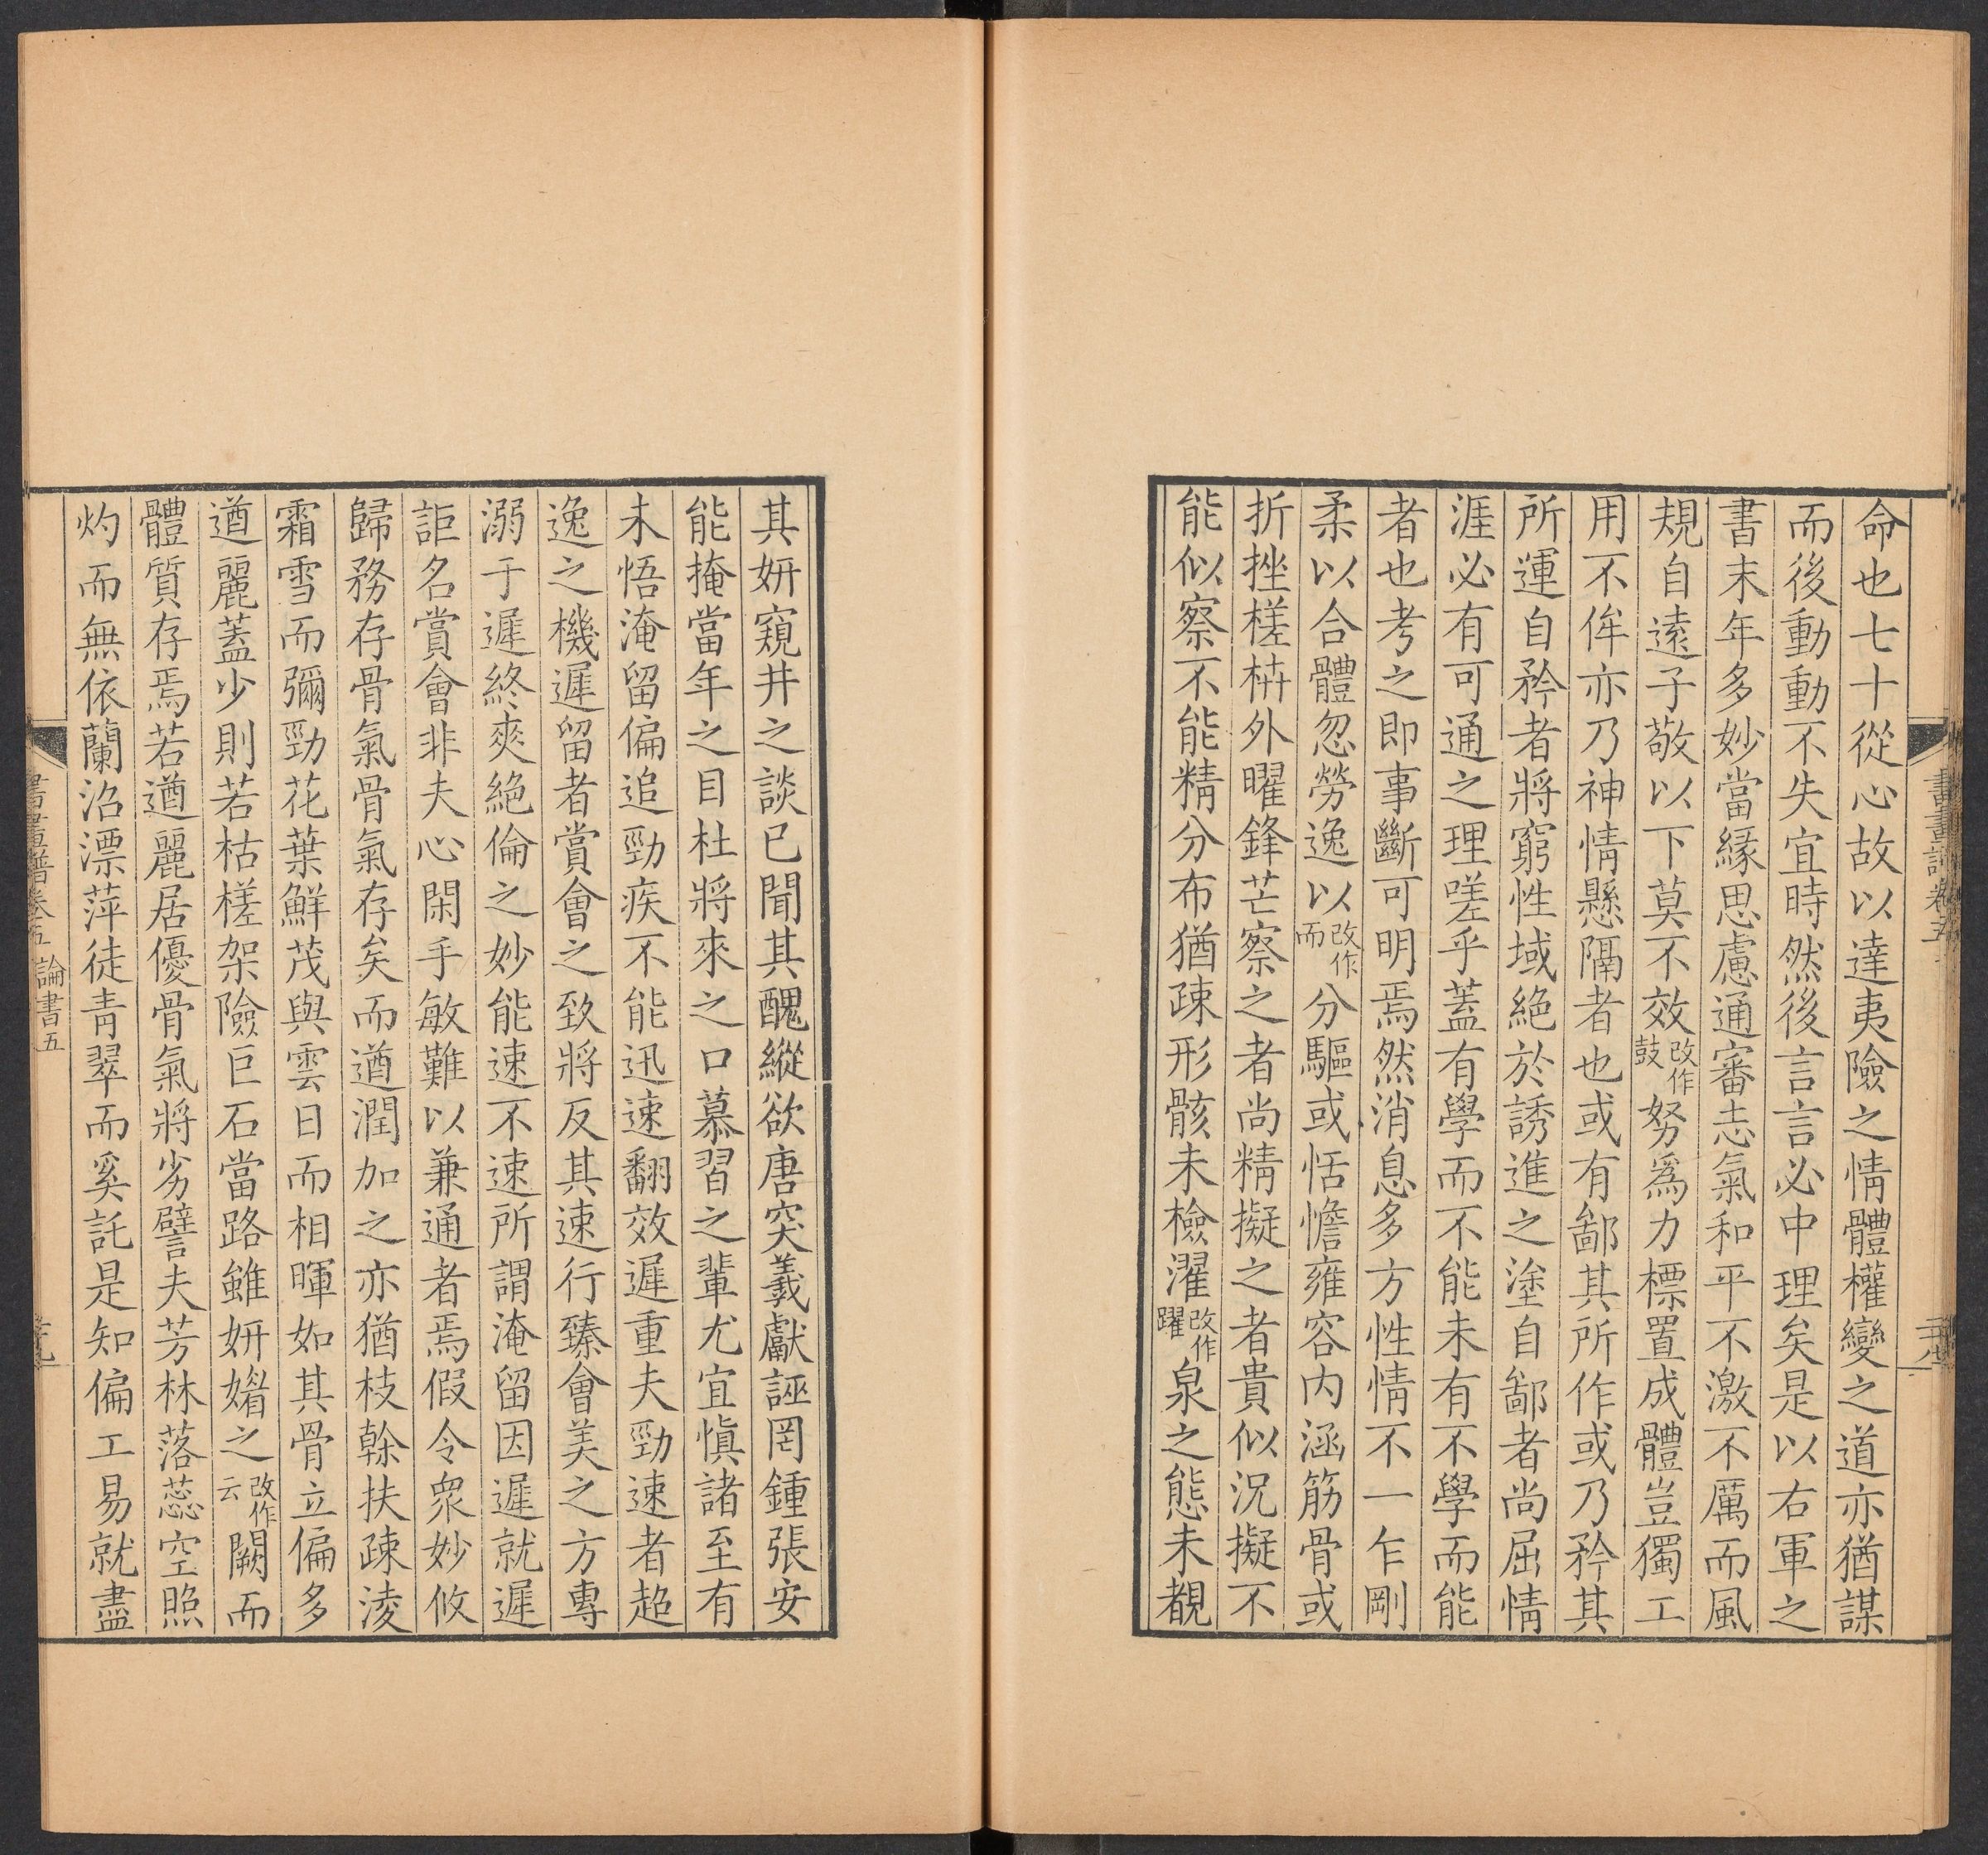 命也七十從心故以達夷險之情體權變之道亦猶謀
而後動動不失宜時然後言言必中理矣是以右軍之
書末年多妙當緣思慮通審志氣和平不激不厲而風
規自遠子敬以下莫不效改作鼓努爲力標置成體豈獨工
用不侔亦乃神情懸隔者也或有鄙其所作或乃矜其
所運自矜者將窮性域絶於誘進之塗自鄙者尚屈情
涯必有可通之理嗟乎蓋有學而不能未有不學而能
者也考之即事斷可明焉然消息多方性情不一乍剛
柔以合體忽勞逸以改作而分驅或恬憺雍容内涵筋骨或
折挫槎枿外曜鋒芒察之者尚精擬之者貴似况擬不
能似察不能精分布猶疎形骸未檢濯改作躍泉之態未覩
其妍窺井之談已聞其醜縱欲唐突羲獻誣罔鍾張安
能掩當年之目杜將來之口慕習之輩尤宜慎諸至有
未悟淹留偏追勁疾不能迅速翻效遲重夫勁速者超
逸之機遲留者賞會之致將反其速行臻會美之方專
溺于遲終爽絶倫之妙能速不速所謂淹留因遲就遲
詎名賞會非夫心閑手敏難以兼通者焉假令衆妙攸
歸務存骨氣骨氣存矣而遒潤加之亦猶枝榦扶疎淩
霜雪而彌勁花葉鮮茂與雲日而相暉如其骨立偏多
遒麗蓋少則若枯槎架險巨石當路雖妍媚之改作云闕而
體質存焉若遒麗居優骨氣將劣譬夫芳林落蕊空照
灼而無依蘭沼漂萍徒青翠而奚託是知偏工易就盡
書畫譜卷五 論書五